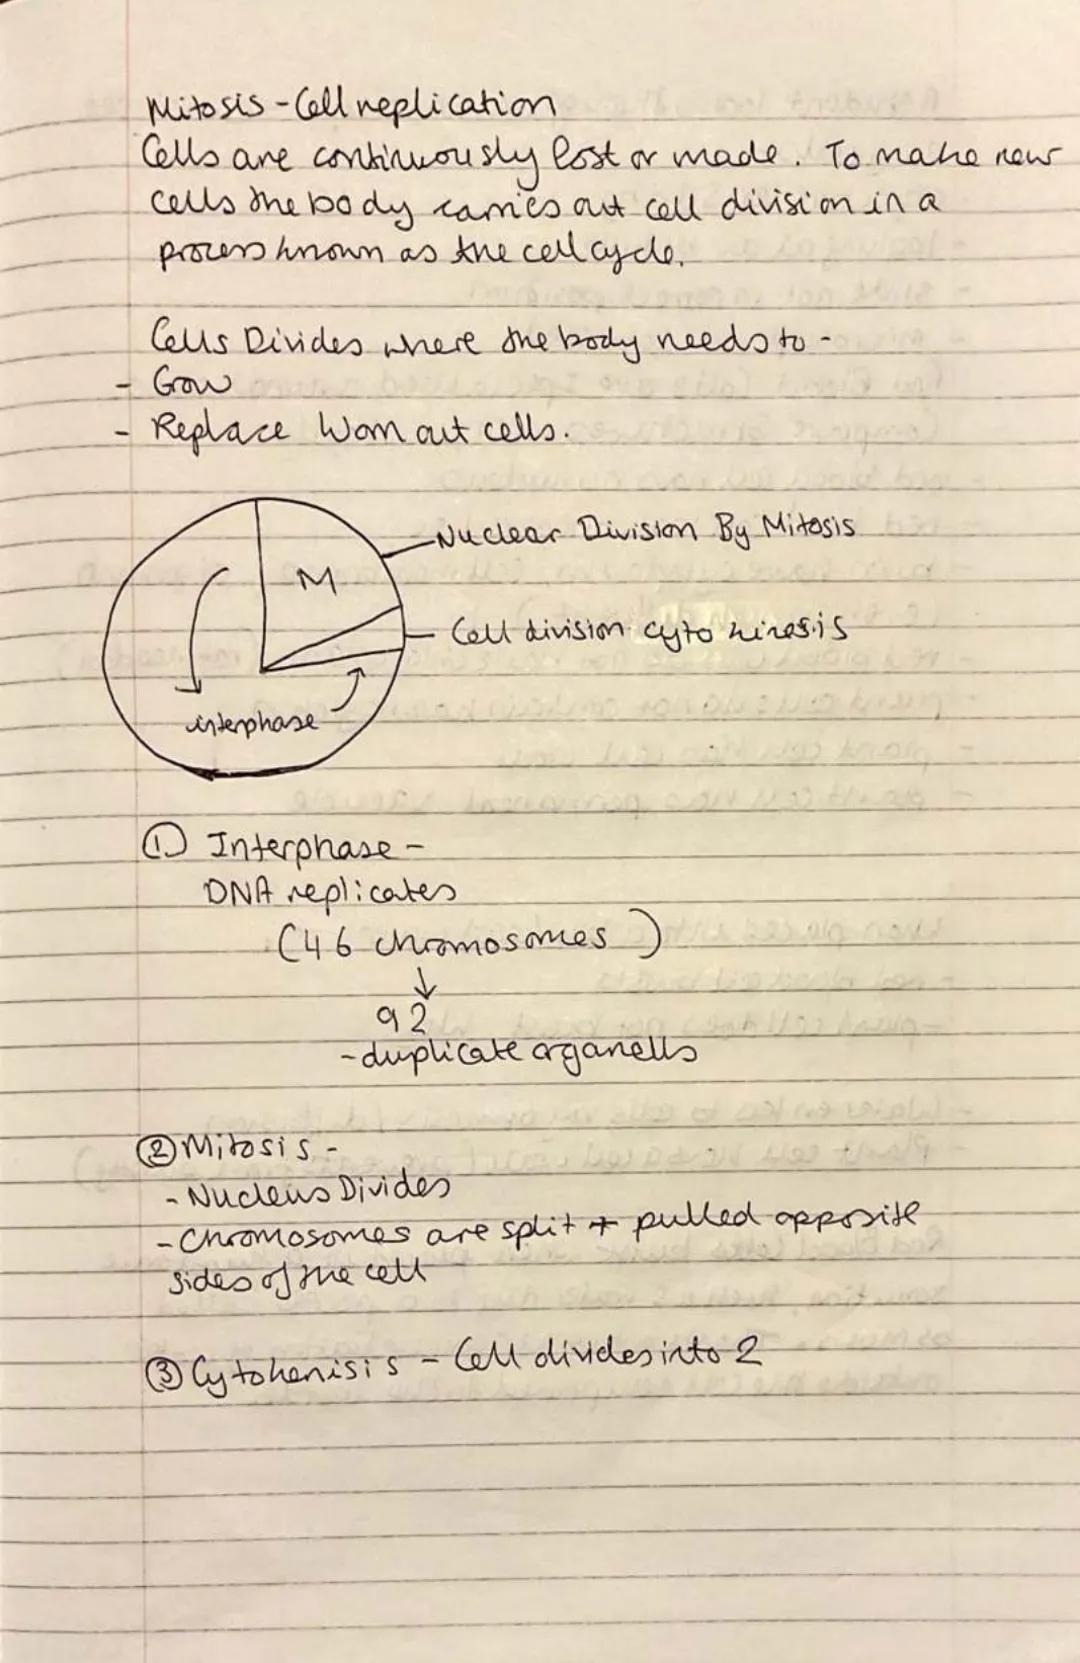 Mitosis - Cell replication
Cells are continuously lost or made. To make new
cells the body carries out cell division in a
process known as the cell cycle.
Cells Divides where the body needs to -
- Grow
- Replace Worn out cells.
Nuclear Division By Mitosis
M
Cell division cyto kinesis
interphase
① Interphase -
DNA replicates
(46 chromosomes)
↓
92
- duplicate organells
② Mitosis -
- Nucleus Divides
- Chromosomes are split + pulled opposite
sides of the cell
③ Cytokenisis - Cell divides into 2